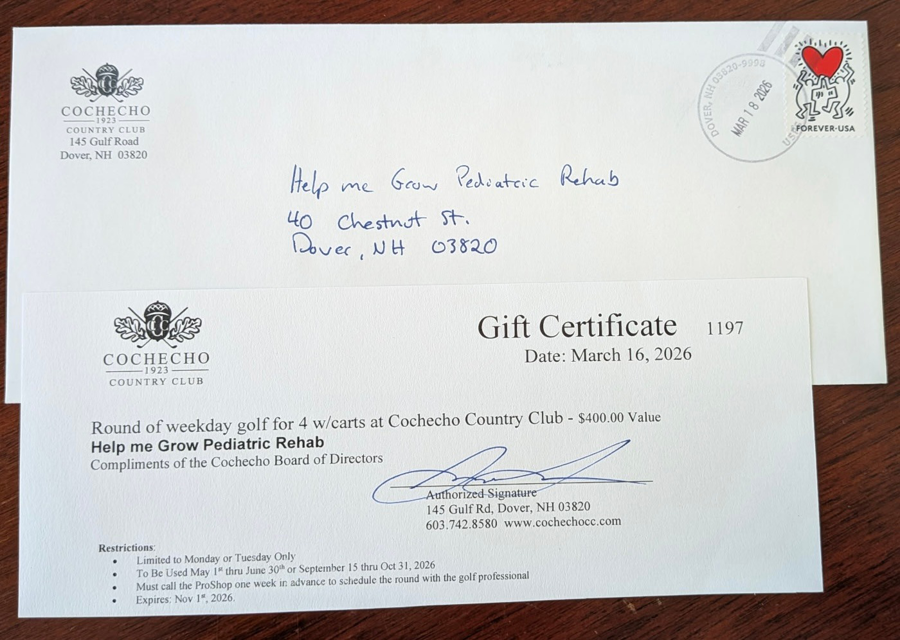 COCHECHO
1923
COUNTRY CLUB
145 Gulf Road
Dover, NH 03820
DOVER, NH 03820-9998
MAR 18 2026
FOREVER-USA
Help me Grow Pediatric Rehab
40 Chestnut St.
Dover, NH 03820
COCHECHO
1923
COUNTRY CLUB
Gift Certificate 1197
Date: March 16, 2026
Round of weekday golf for 4 w/carts at Cochecho Country Club - $400.00 Value
Help me Grow Pediatric Rehab
Compliments of the Cochecho Board of Directors
Authorized Signature
145 Gulf Rd, Dover, NH 03820
603.742.8580 www.cochechocc.com
Restrictions:
• Limited to Monday or Tuesday Only
• To Be Used May 1st thru June 30th or September 15 thru Oct 31, 2026
• Must call the ProShop one week in advance to schedule the round with the golf professional
• Expires: Nov 1st, 2026.